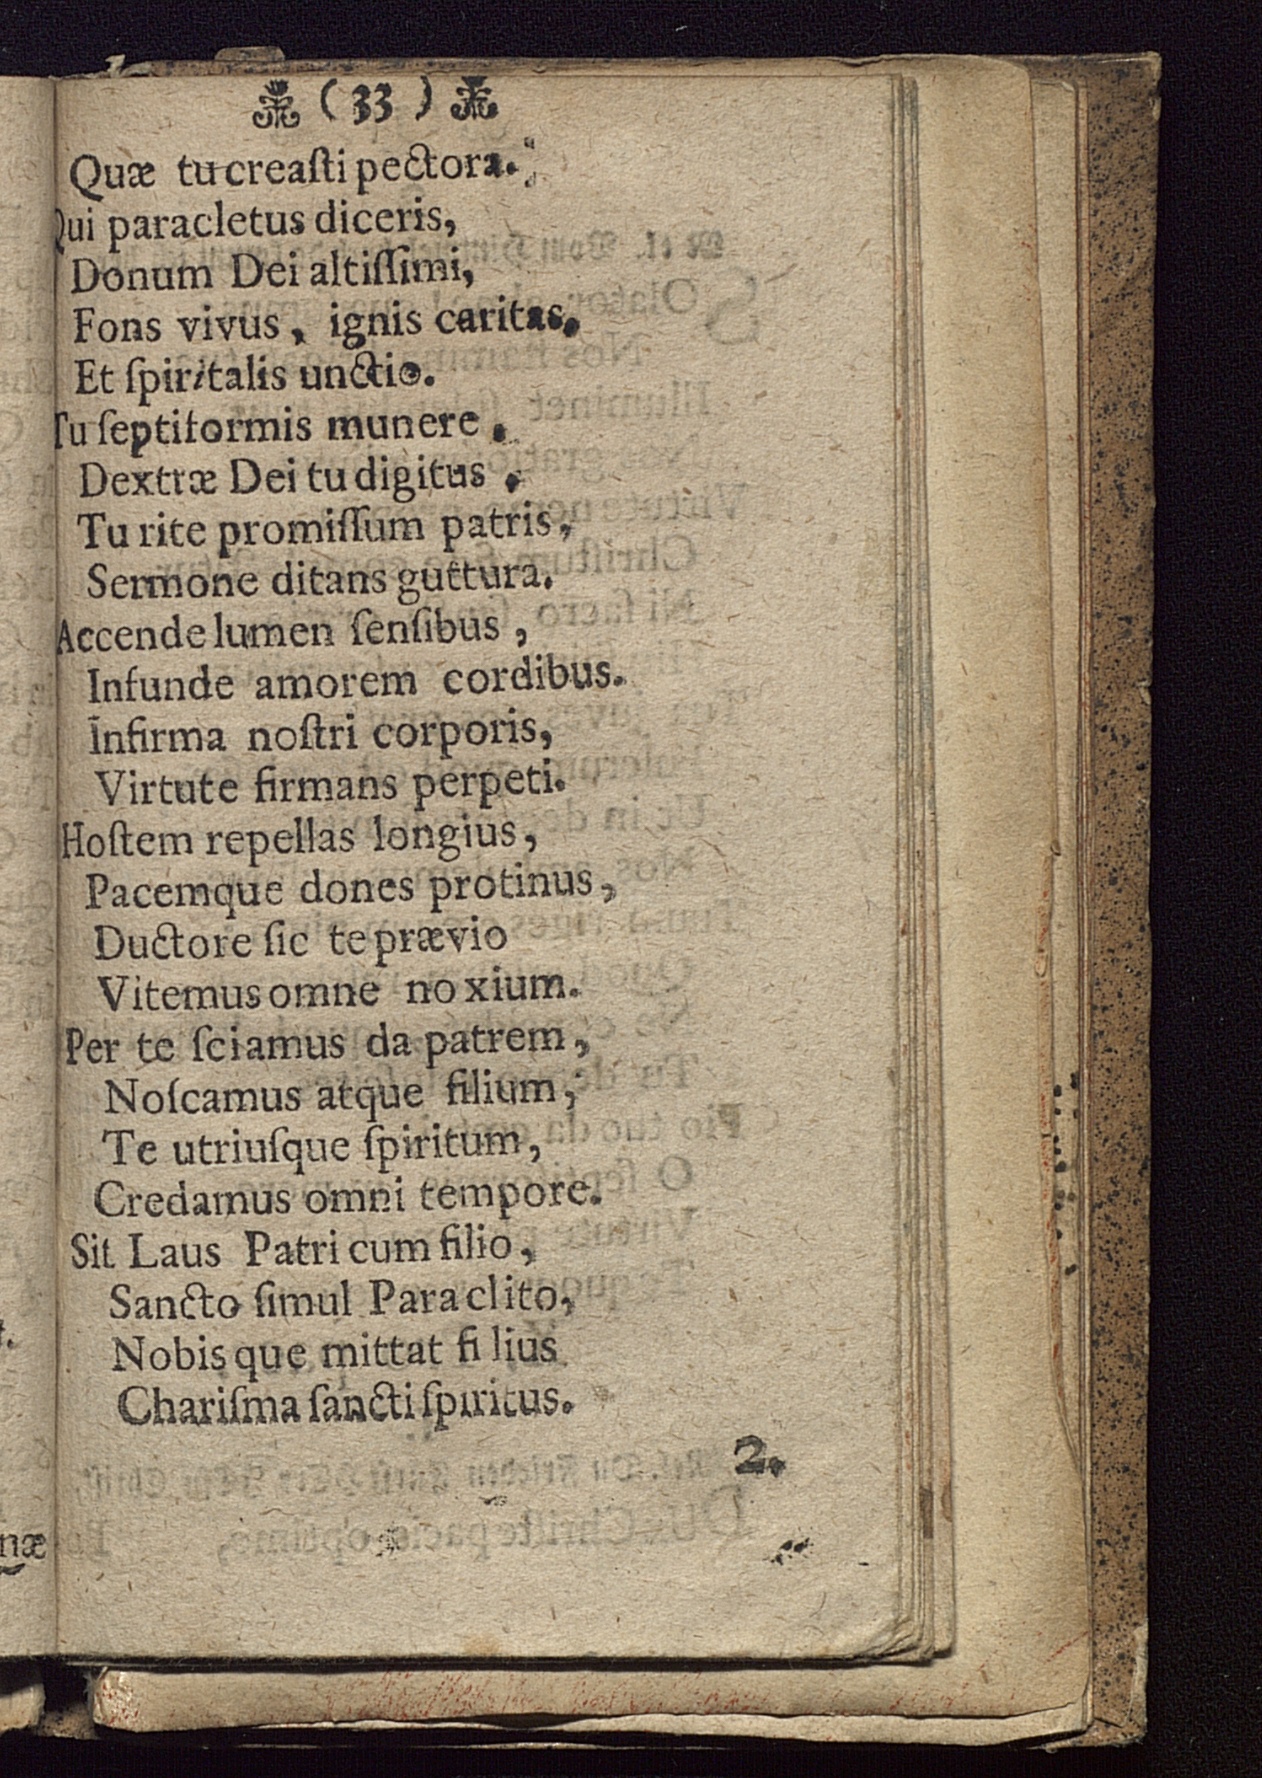 ( 33 )
Quæ tu creaſti pectora.
Qui paracletus diceris,
Donum Dei altiſſimi,
Fons vivus, ignis caritas.
Et ſpiritalis unctio.
Tu ſeptiformis munere.
Dextræ Dei tu digitus.
Tu rite promiſſum patris,
Sermone ditans guttura.
Accende lumen ſenſibus,
Infunde amorem cordibus.
Infirma noſtri corporis,
Virtute firmans perpeti.
Hoſtem repellas longius,
Pacemque dones protinus,
Ductore ſic te prævio
Vitemus omne noxium.
Per te ſciamus da patrem,
Noſcamus atque filium,
Te utriuſque ſpiritum,
Credamus omni tempore.
Sit Laus Patri cum filio,
Sancto ſimul Paraclito,
Nobisque mittat filius
Chariſma ſancti ſpiritus.
2.